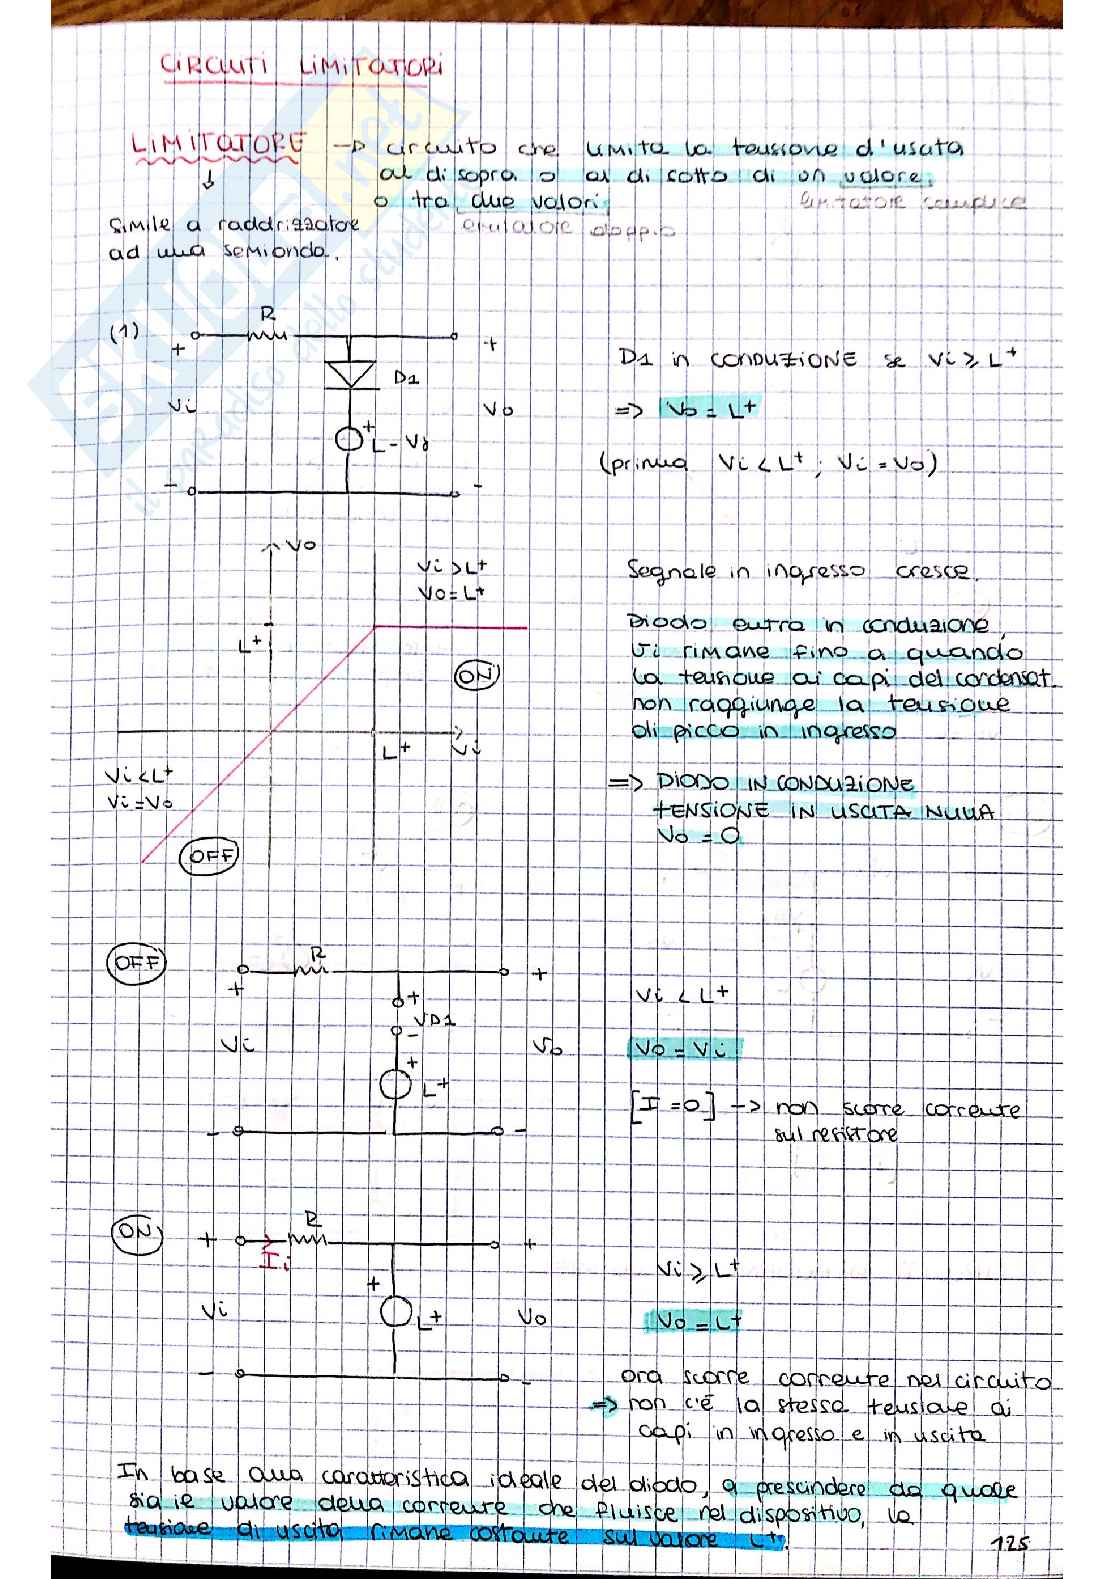 CIRCUITI LIMITATORI
LIMITATORE → circuito che limita la tensione d'uscita
al di sopra o al di sotto di un valore,
o tra due valori, limitatore semplice
Simile a raddrizzatore
ad una semionda.
doppio
(1)
R
+
+
D1
Vi
Vo
+
L-Vγ
-
-
D1 in CONDUZIONE se Vi ≥ L+
=> Vo = L+
(prima Vi < L+ ; Vi = Vo)
Vo
Vi > L+
Vo = L+
L+
ON
L+
Vi
Vi < L+
Vi = Vo
OFF
Segnale in ingresso cresce.
Diodo entra in conduzione,
vi rimane fino a quando
la tensione ai capi del condensat.
non raggiunge la tensione
di picco in ingresso
=> DIODO IN CONDUZIONE
TENSIONE IN USCITA NULLA
Vo = 0
OFF
R
+
+
+
VD1
-
Vi
Vo
+
L+
-
-
Vi < L+
Vo = Vi
[I = 0] → non scorre corrente
sul resistore
ON
+
R
+
Ii
+
Vi
L+
Vo
-
-
Vi ≥ L+
Vo = L+
ora scorre corrente nel circuito
=> non c'è la stessa tensione ai
capi in ingresso e in uscita
In base alla caratteristica ideale del diodo, a prescindere da quale
sia il valore della corrente che fluisce nel dispositivo, la
tensione di uscita rimane costante sul valore L+.
125